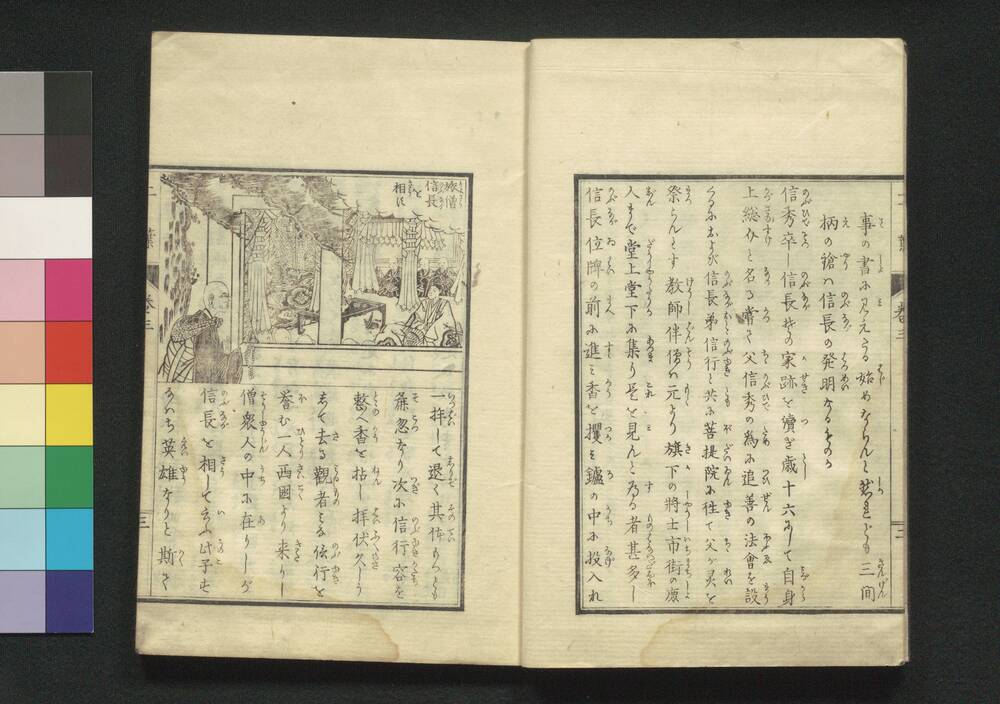 事の書に見えたる始めならんと然れども三間
柄の鎗ハ信長の発明なるもの
信秀卒し信長其の家跡を續ぎ歳十六にして自身
上総介と名る嘗て父信秀の為に追善の法會を設
くるにおよび信長弟信行と共に菩提院に往て父が灵を
祭らんとす教師伴僧ハ元より旗下の將士市街の
人まで堂上堂下に集り是を見んと為る者甚多し
信長位牌の前に進ミ香を攫ミ鑪の中に投入れ
旅僧
信長
を
相す
一拝して退く其体
麁忽なり次に信行容を
整へ香を拈し拝伏久しう
して去る觀者ミな信行を
誉む一人西國より来りし
僧衆人の中に在りしが
信長を相して云ふ此子
英雄なりと斯て
巻三
三